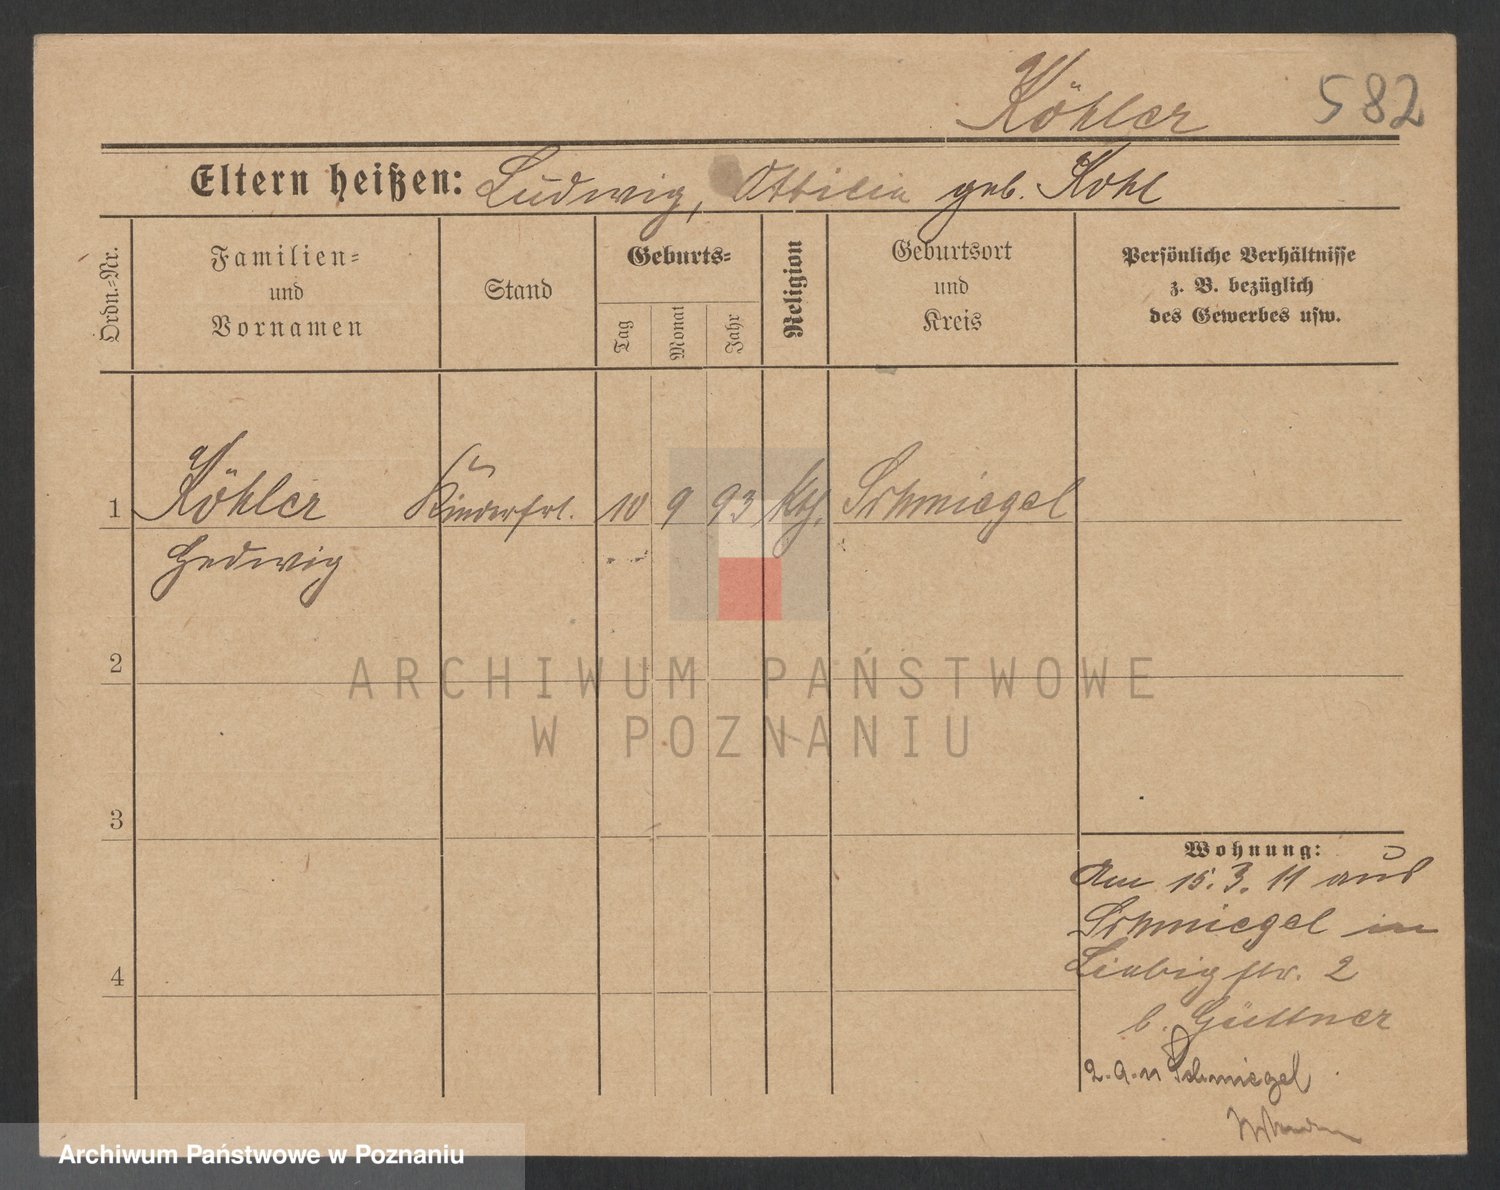 Köhler 582
Eltern heißen: Ludwig, Ottilie geb. Kohl
Ordn.=Nr.
Familien=
und
Vornamen
Stand
Geburts=
Tag
Monat
Jahr
Religion
Geburtsort
und
Kreis
Persönliche Verhältnisse
z. B. bezüglich
des Gewerbes usw.
1 Köhler Kinderfrl. 10 9 93 kth. Schmiegel
Hedwig
2
ARCHIWUM PAŃSTWOWE
W POZNANIU
3
Wohnung:
Am 15. 3. 11 aus
Schmiegel in
Liebigstr. 2
b. Güttner
4
2.9.11 Schmiegel
Archiwum Państwowe w Poznaniu